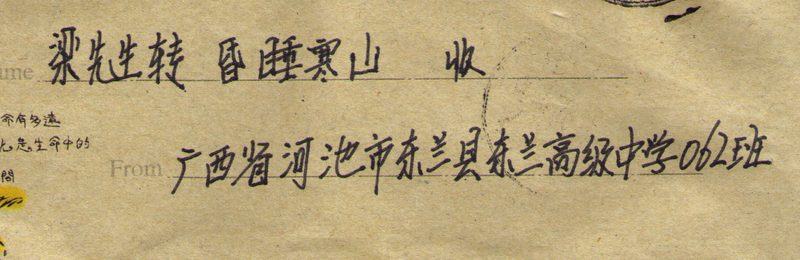 梁先生转 昏睡寒山 收
命有多遠
化忽生命中的
問
From 广西省河池市东兰县东兰高级中学062班